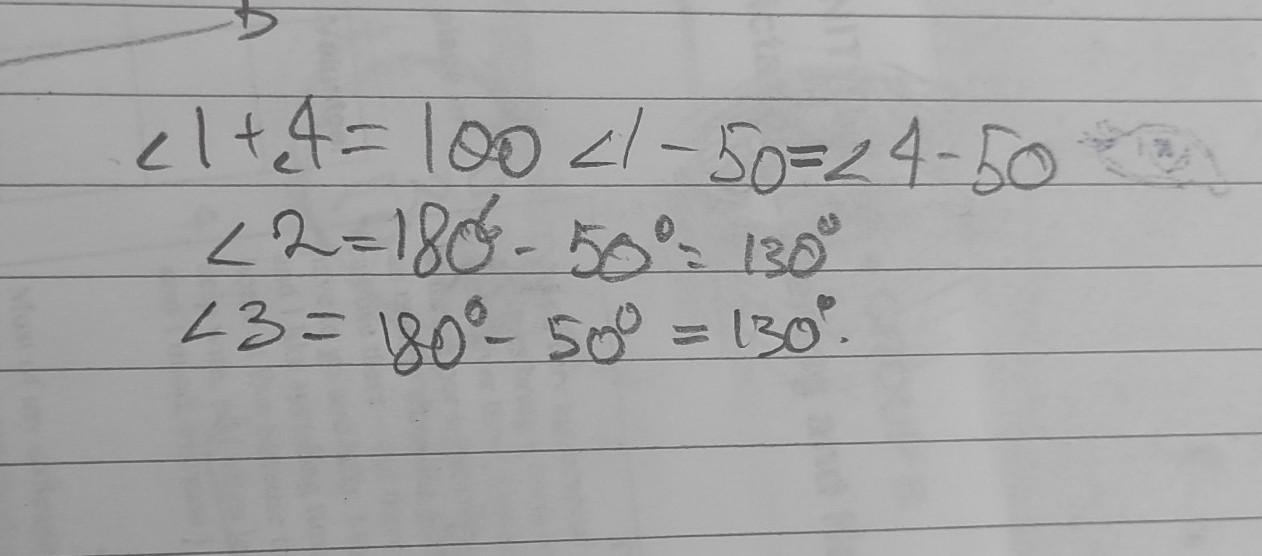 D
<1+<4=100 <1-50=<4-50
<2=180°-50°=130°
<3=180°-50°=130°.